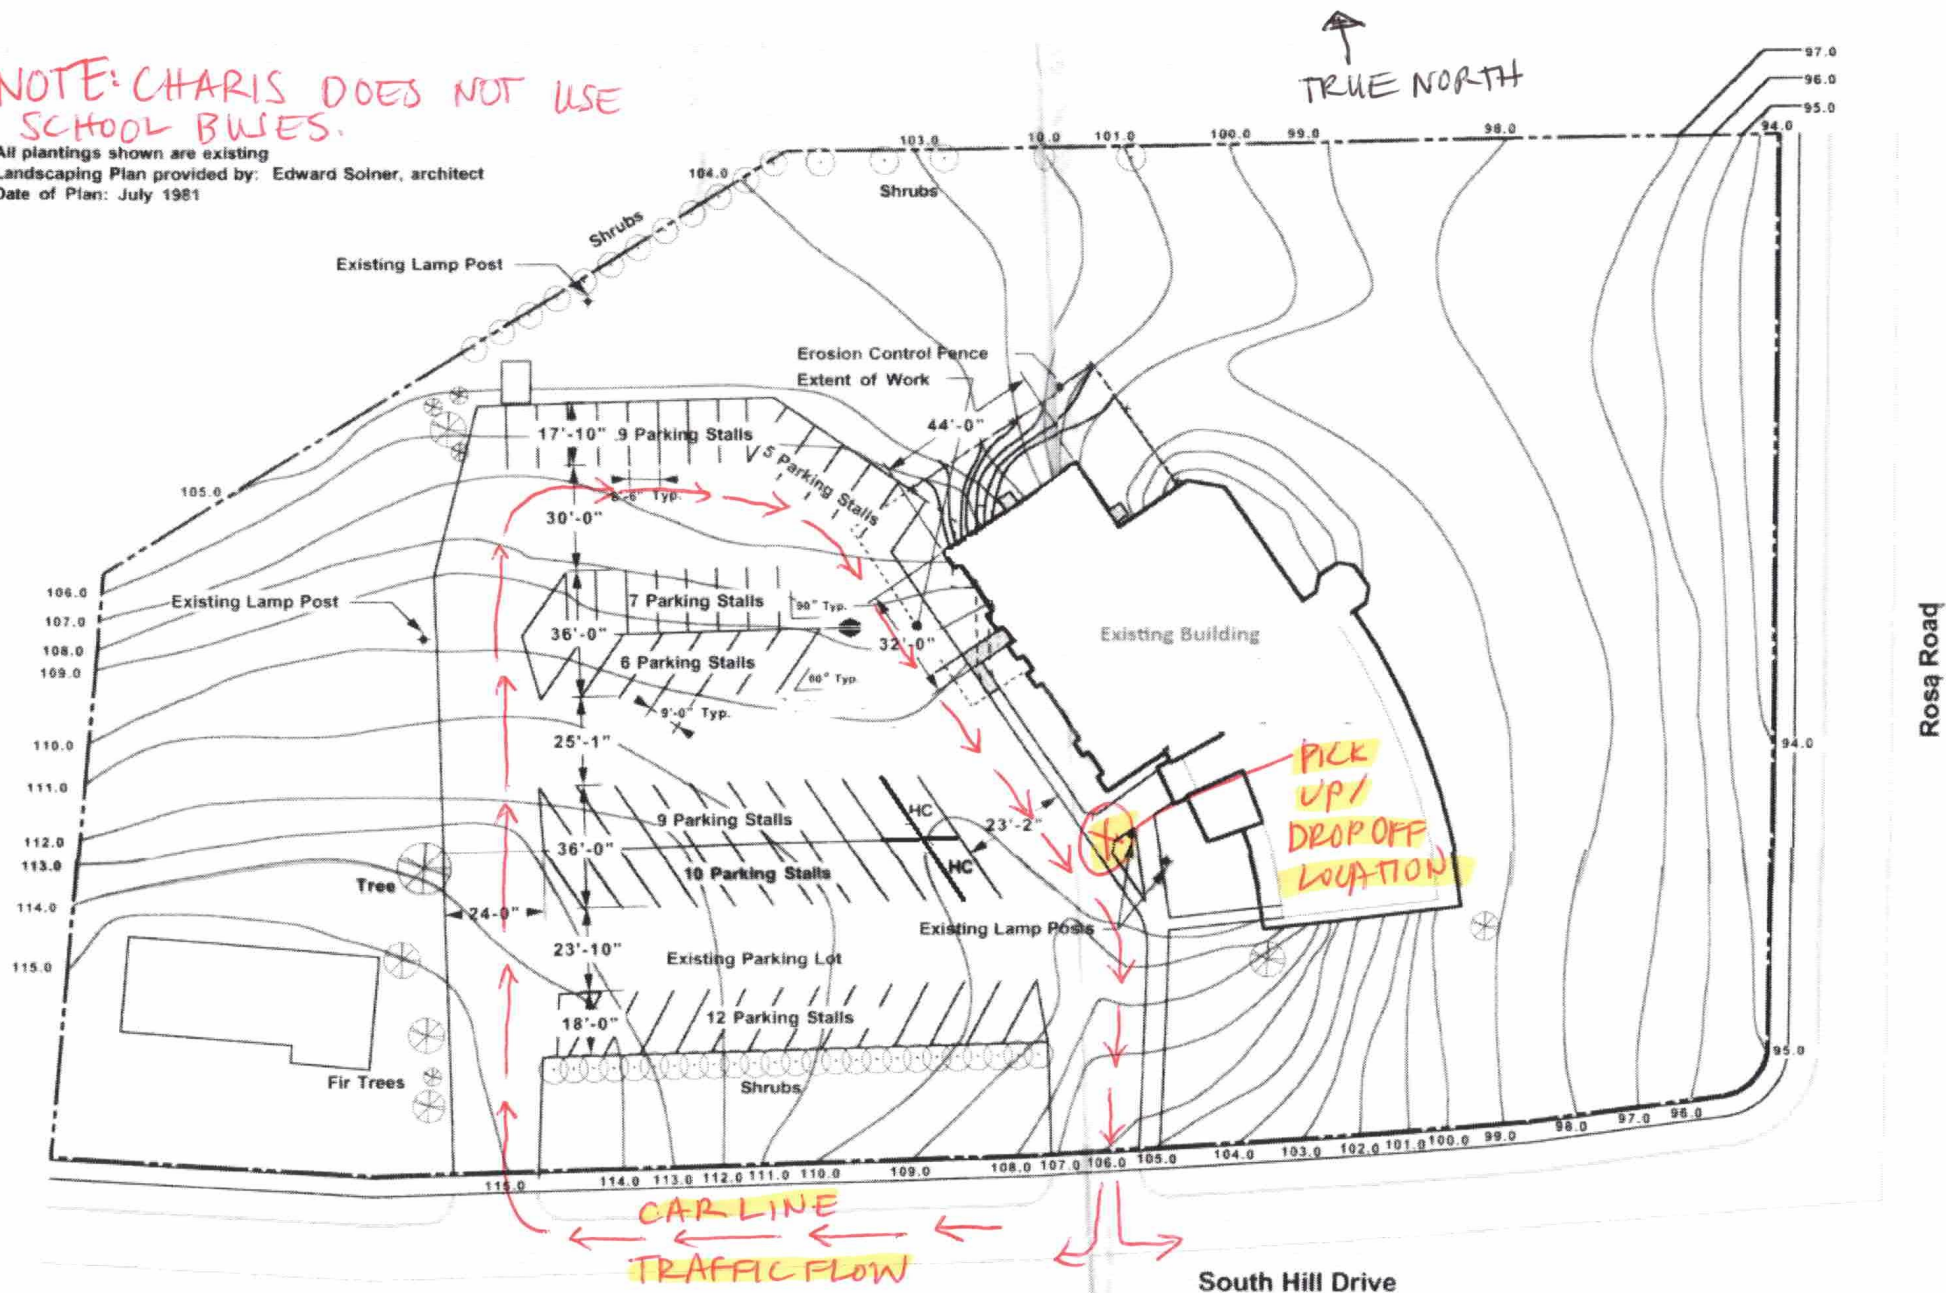 TRUE NORTH
NOTE: CHARIS DOES NOT USE
SCHOOL BUSES.
All plantings shown are existing
Landscaping Plan provided by: Edward Solner, architect
Date of Plan: July 1981
97.0
96.0
95.0
94.0
98.0
99.0
100.0
101.0
10.0
103.0
104.0
Shrubs
Shrubs
Existing Lamp Post
Erosion Control Fence
Extent of Work
44'-0"
17'-10"
9 Parking Stalls
5 Parking Stalls
105.0
8'-6" Typ.
30'-0"
106.0
107.0
108.0
109.0
Existing Lamp Post
7 Parking Stalls
90° Typ.
36'-0"
32'-0"
6 Parking Stalls
60° Typ.
9'-0" Typ.
Existing Building
Rosa Road
110.0
111.0
112.0
113.0
114.0
115.0
25'-1"
94.0
PICK
UP/
DROP OFF
LOCATION
9 Parking Stalls
HC
23'-2"
36'-0"
10 Parking Stalls
HC
Tree
24'-0"
Existing Lamp Posts
23'-10"
Existing Parking Lot
18'-0"
12 Parking Stalls
95.0
Fir Trees
Shrubs
115.0
114.0
113.0
112.0
111.0
110.0
109.0
108.0
107.0
106.0
105.0
104.0
103.0
102.0
101.0
100.0
99.0
98.0
97.0
96.0
CAR LINE
TRAFFIC FLOW
South Hill Drive